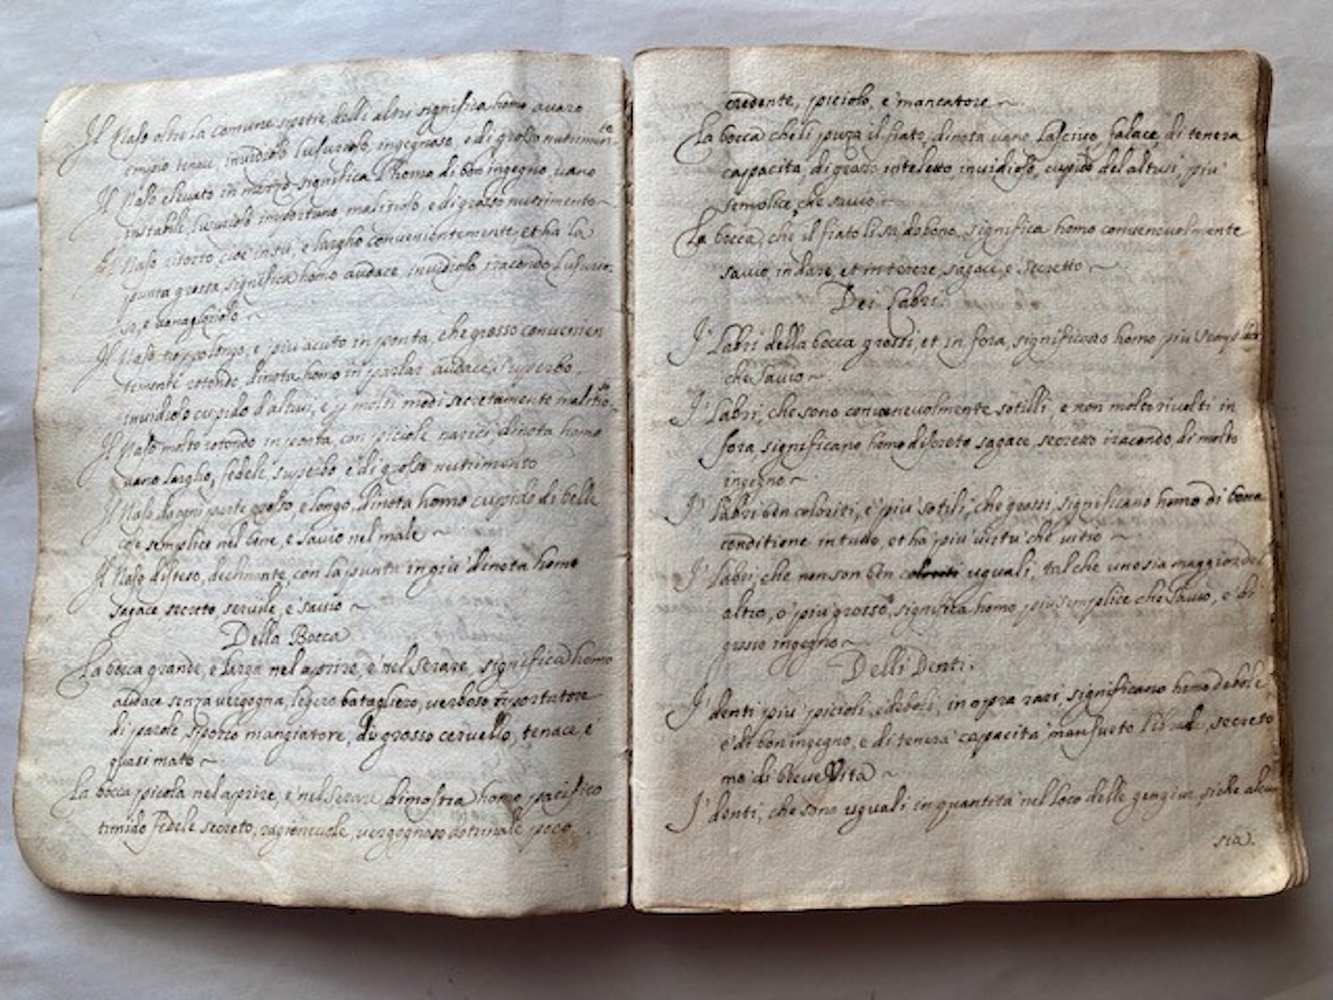 Il Naso oltre la comune spetie delli altri significa homo avaro
empio tenace invidioso lusurioso, ingegnoso, e di grosso nutrimento
Il Naso elevato in mezzo significa l'homo di bon ingegno, vano
instabile, lusurioso importuno malitioso, e di grosso nutrimento
Il Naso ritorto, cioe in su, e largho convenientemente et ha la
punta grossa, significa homo audace, invidioso iracondo Lusurio-
so, e vanaglorioso
Il Naso troppo longo, e piu acuto in ponta, che grosso convenien
temente rotondo, dinota homo in parlar audace, superbo,
invidioso cupido d'altrui, e p molti modi secretamente malitioso
Il Naso molto rotondo in ponta, con picciole narici dinota homo
vano largho, fedele superbo e di grosso nutrimento
Il Naso da ogni parte grosso, e longo, dinota homo cupido di belle
cose semplice nel bene, e savio nel male
Il Naso disteso, declinante, con la punta in giu dinota homo
sagace secreto servile, e savio
Della Bocca
La bocca grande, e larga nel aprire, e nel serare, significa homo
audace senza vergogna, legero batagliero, verboso riportatore
di parole sporco mangiatore, di grosso cervello, tenace, e
quasi mato
La bocca picola nel aprire, e nel serare dimostra homo pacifico
timido fedele secreto, ragionevole, vergognoso dotrinale poco
credente, piciolo, e mancatore
La bocca che li puza il fiato, dinota vano Lascivo, falace, di tenera
cappacita, di grosso inteletto, invidioso, cupido del altrui, piu
semplice, che savio
La bocca, che il fiato li sa dobono, significa homo convenevolmente
savio in dare, et in tenere, sagace, e secretto
Dei Labri
I' Labri della bocca grossi, et in fora, significano homo piu semplice
che savio
I' Labri, che sono convenevolmente sotilli, e non molto rivolti in
fora, significano homo discreto sagace, secretto iracondo, di molto
ingegno
I' Labri ben coloriti, e' piu' sotili, che grossi, significano homo di bona
conditione in tutto, et ha piu' virtu' che vitio
I' Labri, che non son ben coloriti uguali, tal che uno sia maggior del
altro, o' piu grosso, significa homo piu semplice che savio, e' di
grosso ingegno
Delli Denti.
I' denti piu' piccioli, e deboli, in opra rari, significano homo debole
e' di bon ingegno, e di tenera' capacita' mansueto secreto
ma' di breve vita
I' denti, che sono uguali in quantita' nel Loco delle gengive,
sia.